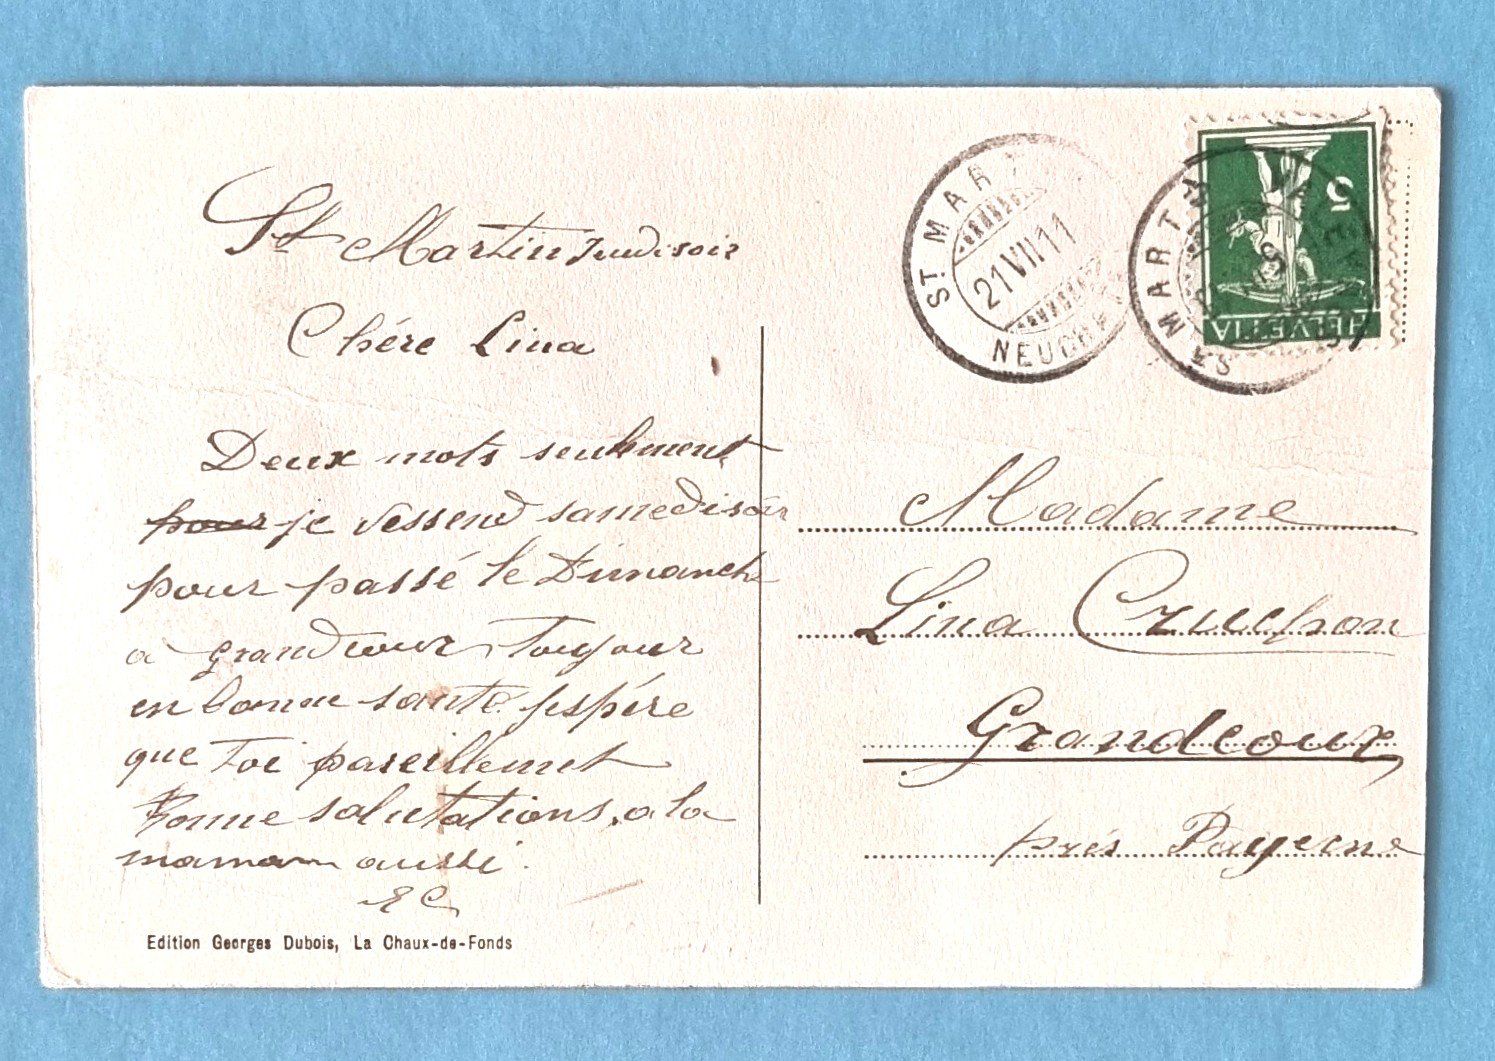 St Martin Jeudi soir
Chère Lina
Deux mots seulement
pour je dessend samedi soir
pour passé le Dimanche
a grandcour, Toujour
en bonne santé. jespère
que Toi pareillement
Bonne salutations, a la
maman aussi.
EC
Edition Georges Dubois, La Chaux-de-Fonds
ST MART
21 VII 11
NEUCH
ST MART
5
HELVETIA
Madame
Lina Cruchon
Grandcour
près Payerne